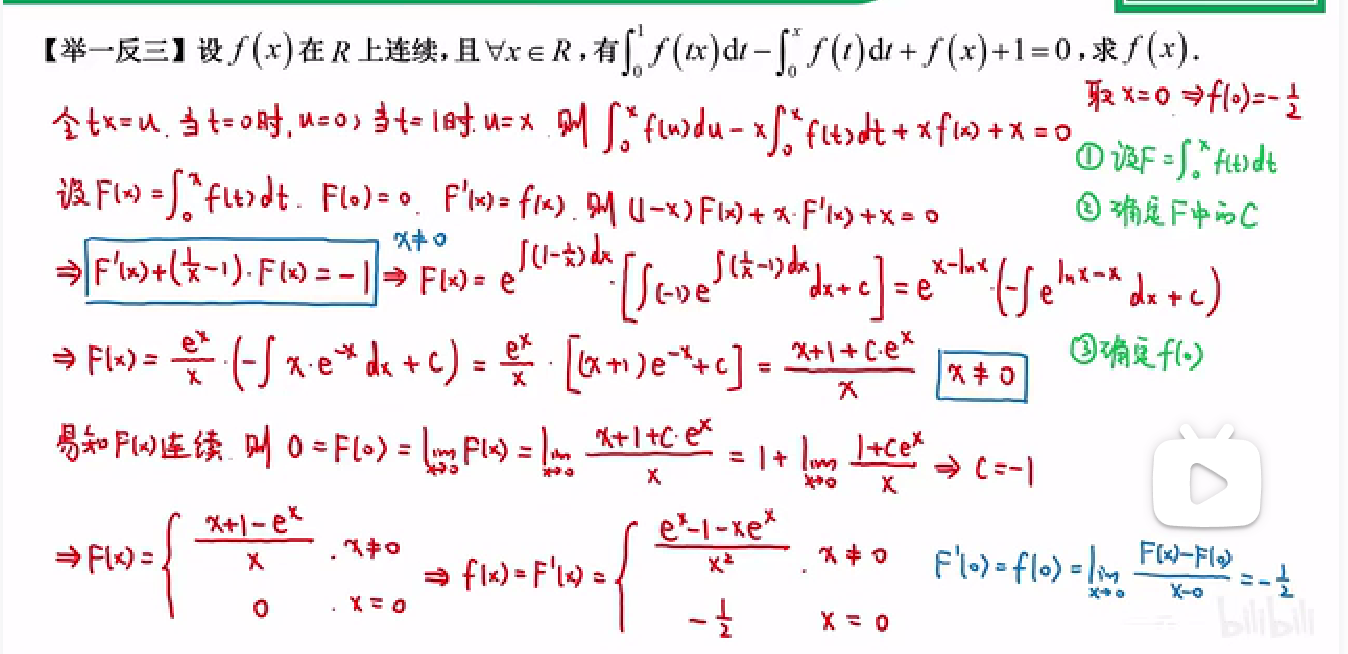 【举一反三】设 f(x) 在 R 上连续,且 ∀x∈R,有∫₀¹ f(tx)dt−∫₀ˣ f(t)dt+f(x)+1=0,求 f(x).
取 x=0 ⇒ f(0)=-1/2
令 tx=u. 当 t=0时, u=0; 当 t=1时. u=x. 则 ∫₀ˣ f(u)du - x∫₀ˣ f(t)dt + xf(x) + x = 0
① 设F=∫₀ˣ f(t)dt
设 F(x)=∫₀ˣ f(t)dt. F(0)=0. F'(x)=f(x). 则 (1-x)F(x)+x·F'(x)+x=0
② 确定F中的C
x≠0
⇒ F'(x)+(1/x-1)·F(x)=-1 ⇒ F(x)=e^{∫(1-1/x)dx}·[∫(-1)e^{∫(1/x-1)dx}dx+c]=e^{x-lnx}·(-∫e^{lnx-x}dx+c)
⇒ F(x)=e^x/x·(-∫x·e^{-x}dx+c)=e^x/x·[(x+1)e^{-x}+c]=(x+1+c·e^x)/x x≠0
③确定f(0)
易知F(x)连续. 则 0=F(0)=lim_{x→0}F(x)=lim_{x→0}(x+1+c·e^x)/x=1+lim_{x→0}(1+ce^x)/x ⇒ c=-1
⇒F(x)={(x+1-e^x)/x . x≠0
0 . x=0
⇒ f(x)=F'(x)={(e^x-1-xe^x)/x² . x≠0
-1/2 x=0
F'(0)=f(0)=lim_{x→0}(F(x)-F(0))/(x-0)=-1/2
bilibili